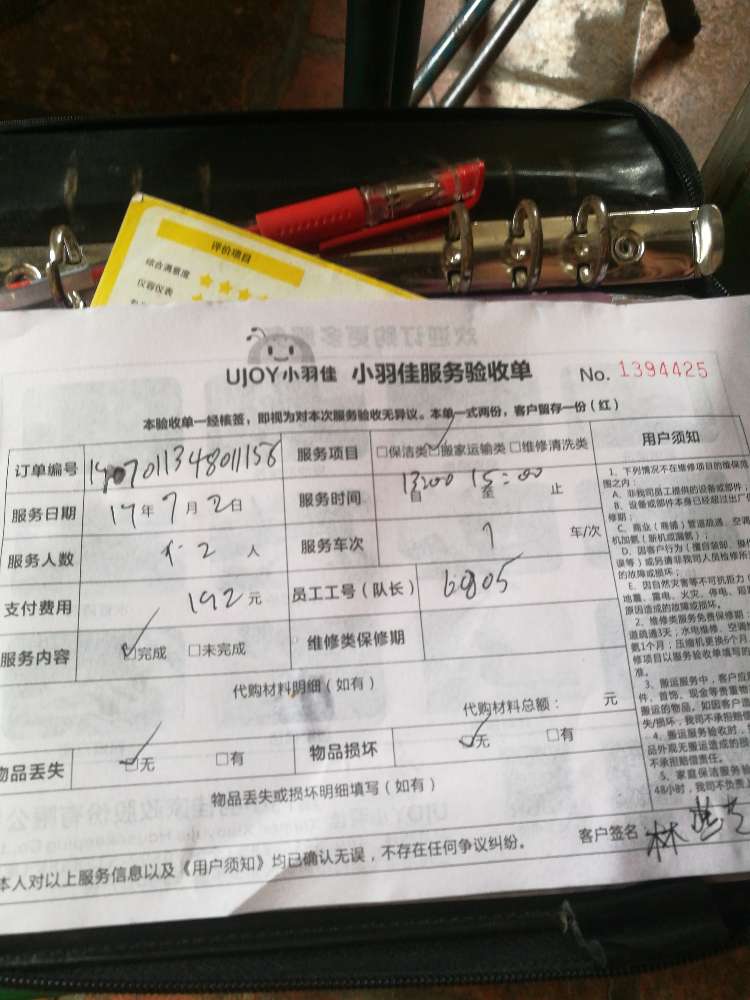 评价项目
综合满意度
仪容仪表
UJOY小羽佳 小羽佳服务验收单 No. 1394425
本验收单一经核签，即视为对本次服务验收无异议。本单一式两份，客户留存一份（红）
订单编号 服务项目 □保洁类 □搬家运输类 □维修清洗类
服务日期 17年7月2日 服务时间 自 至 15:00 止
服务人数 2 人 服务车次 1 车/次
支付费用 192元 员工工号（队长） 6805
服务内容 □完成 □未完成 维修类保修期
代购材料明细（如有）
代购材料总额： 元
物品丢失 □无 □有 物品损坏 □无 □有
物品丢失或损坏明细填写（如有）
客户签名 林
本人对以上服务信息以及《用户须知》均已确认无误，不存在任何争议纠纷。
用户须知
1、下列情况不在维修项目的维保范
围之内：
A、非我司员工提供的设备或部件；
B、设备或部件本身已经超过出厂
修期；
C、商业（商铺）管道疏通、空
机加氨（新机或漏氨）；
D、因客户行为（擅自装卸、操
误等）或另请非我司人员检修所
的故障或损坏；
E、因自然灾害等不可抗拒力
地震、雷电、火灾、停电、
原因造成的故障或损坏。
2、维修类服务免费保修期
道疏通3天；水电维修、空调
氨1个月；压缩机更换6个月
修项目以服务验收单填写的
准。
3、搬运服务中，客户应
件、首饰、现金等贵重
搬运的物品。如因客户
失/损坏，我司不承担赔
4、搬运服务验收时，
品外观无搬运造成的损
不承担赔偿责任。
5、家庭保洁服务验
48小时，我司不负责